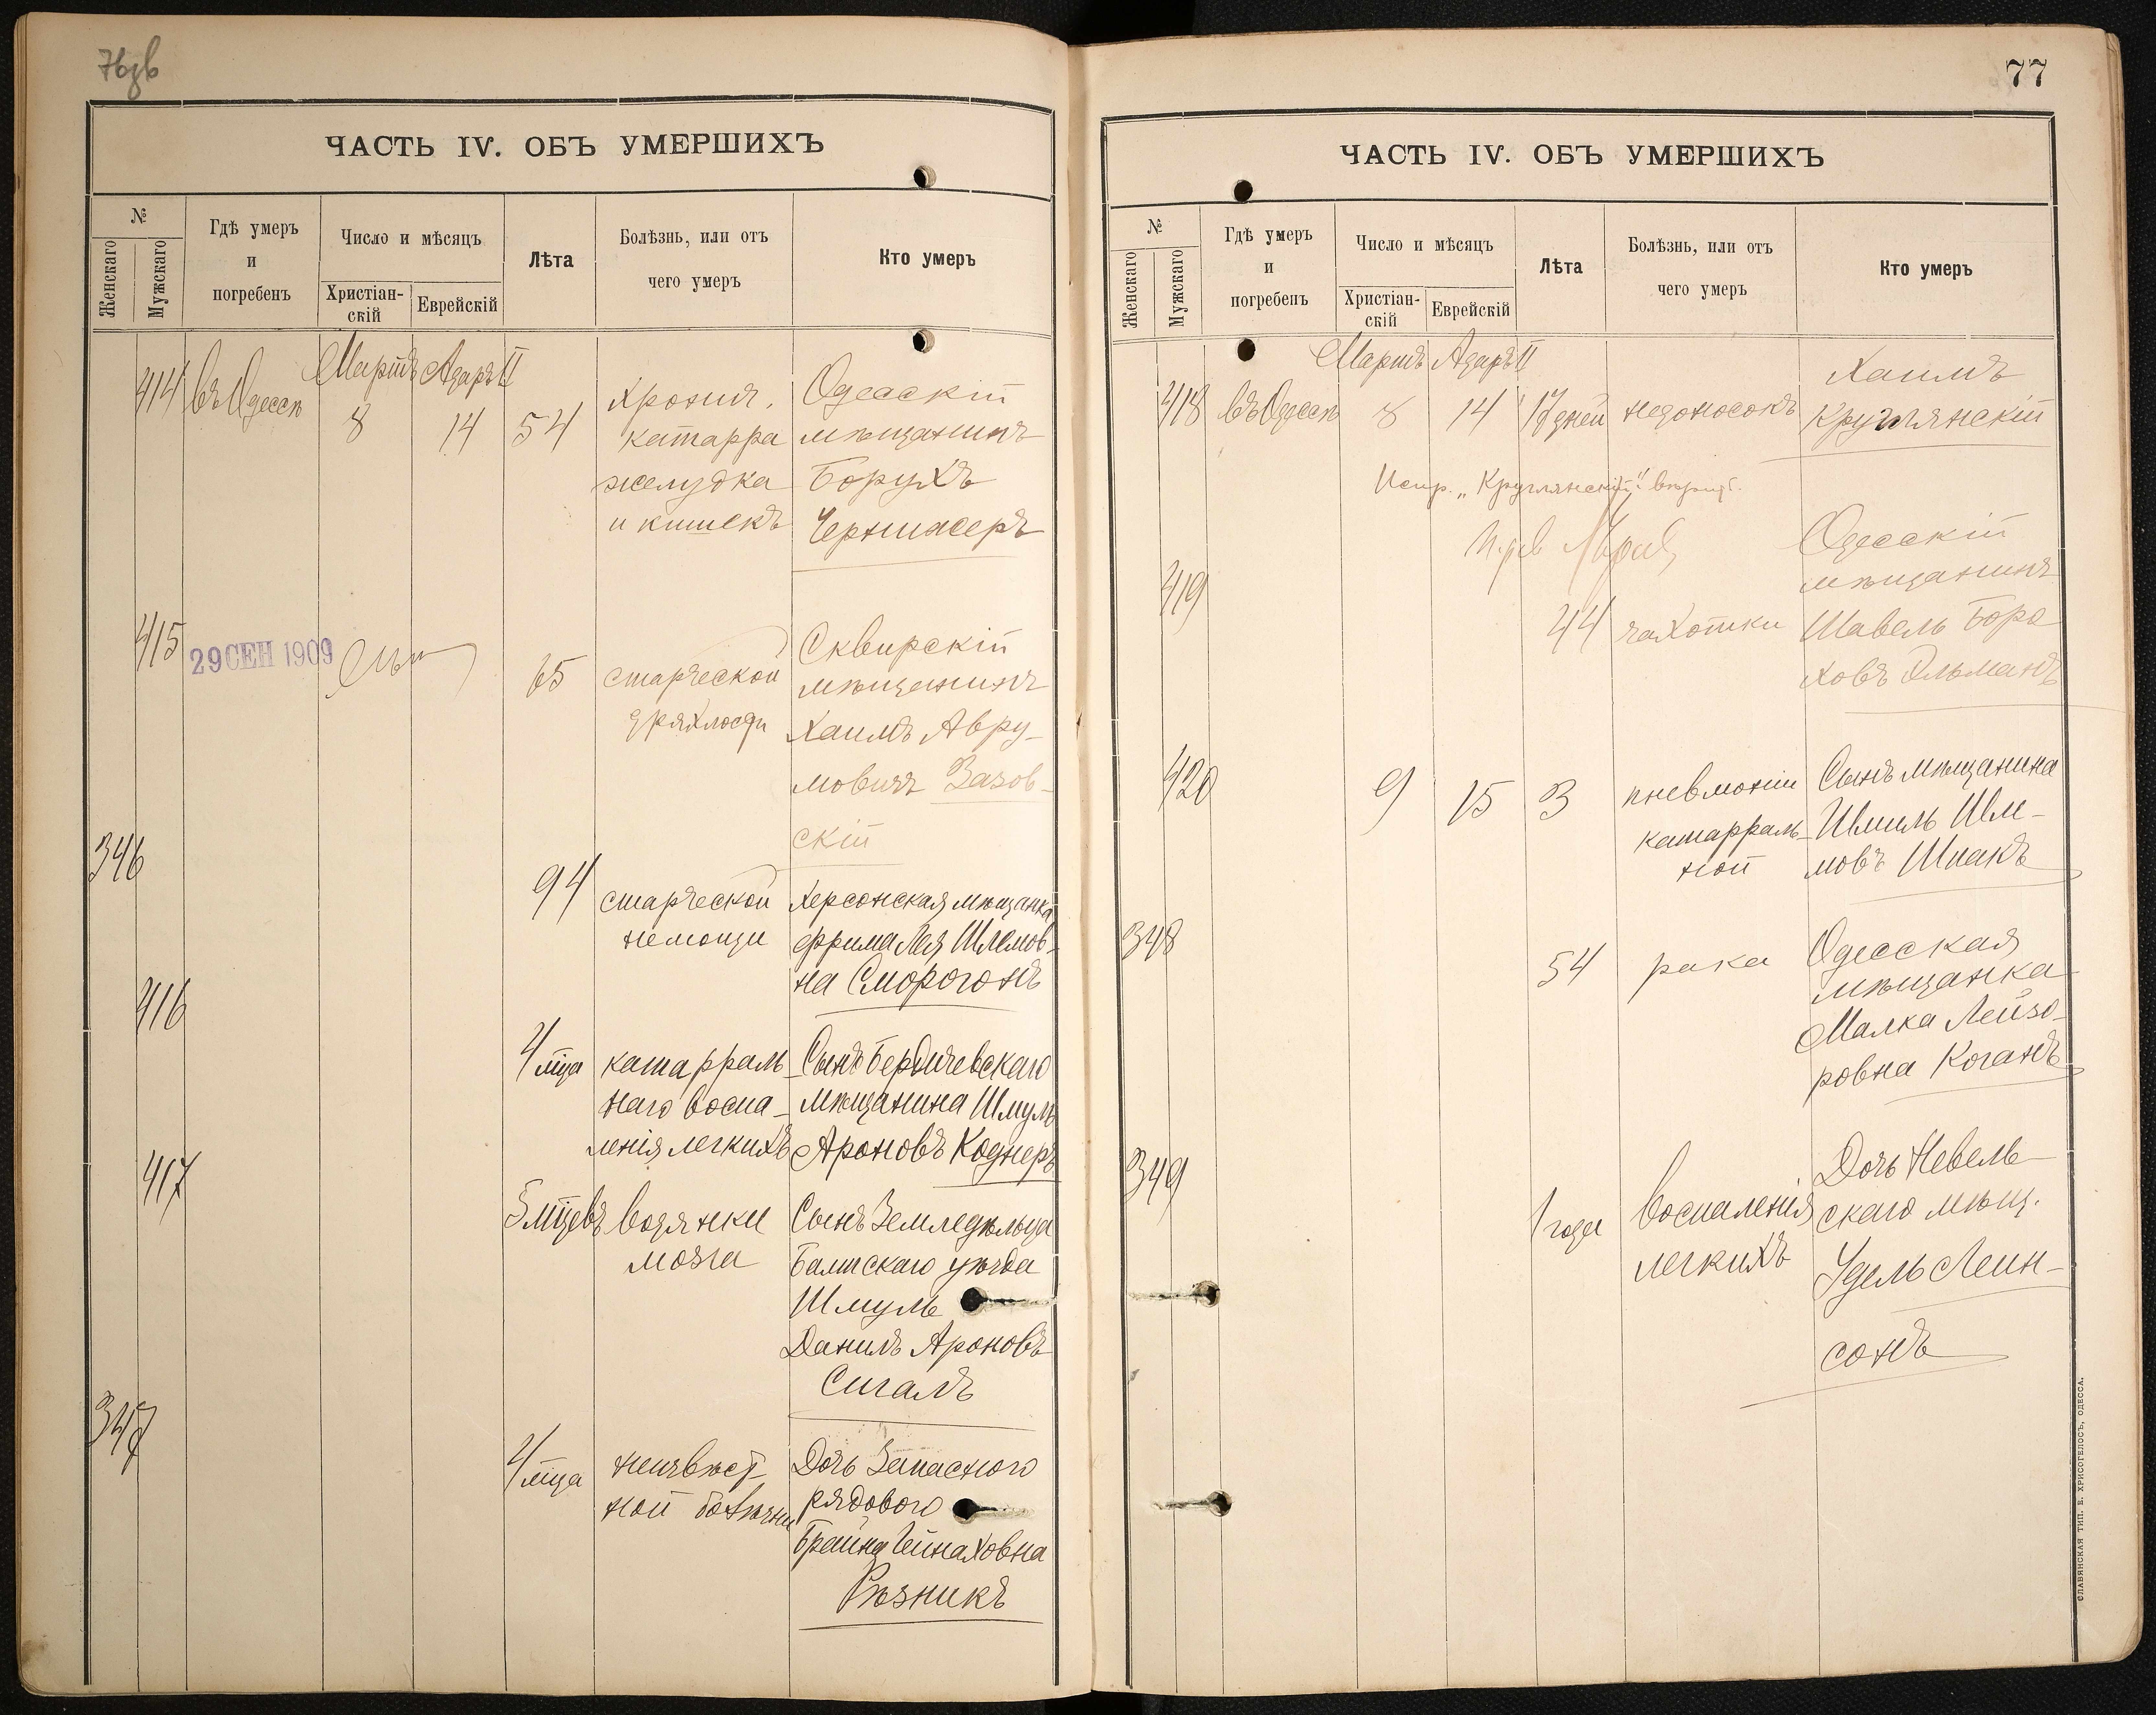 ЧАСТЬ IV. ОБЪ УМЕРШИХЪ
№
Женскаго
Мужскаго
Гдѣ умеръ
и
погребенъ
Число и мѣсяцъ
Христіан-
скій
Еврейскій
Лѣта
Болѣзнь, или отъ
чего умеръ
Кто умеръ
Мартъ Адаръ II
414 въ Одессѣ 8 14 54
Хронич.
катарра
желудка
и кишекъ
Одесскій
мѣщанинъ
Борухъ
415
29 СЕН 1909
65
старческой
дряхлости
Сквирскій
мѣщанинъ
Хаимъ Авру-
мовичъ Зазов-
скій
346
94
старческой
немощи
Херсонская мѣщанка
Фрима Лея Шлемов-
на Сморогонъ
416
4 мца
катарраль-
наго воспа-
ленія легкихъ
Сынъ Бердичевскаго
мѣщанина Шмуль
Ароновъ Коднеръ
417
5 мцевъ
водянки
мозга
Сынъ Земледѣльца
Балтскаго уѣзда
Шмуль
Данилъ Ароновъ
Сигалъ
347
4 мца
неизвѣст
ной болѣзни
Дочь Запасного
рядового
Брайна
Рѣзникъ
77
ЧАСТЬ IV. ОБЪ УМЕРШИХЪ
№
Женскаго
Мужскаго
Гдѣ умеръ
и
погребенъ
Число и мѣсяцъ
Христіан-
скій
Еврейскій
Лѣта
Болѣзнь, или отъ
чего умеръ
Кто умеръ
Мартъ Адаръ II
418 въ Одессѣ 8 14 17 дней недоносокъ
Хаимъ
Круглянскій
Испр. „Круглянскій"
419
44 чахотки
Одесскій
мѣщанинъ
Шавель Боро
ховъ Ольманъ
420 9 15 3
пневмоніи
катарраль-
ной
Сынъ мѣщанина
Шмиль Шле-
мовъ Шпакъ
348
54 рака
Одесская
мѣщанка
Малка Лейзо-
ровна Коганъ
349
1 года
воспаленія
легкихъ
Дочь Невель-
скаго мѣщ.
Удель Леин-
сонъ
СЛАВЯНСКАЯ ТИП. Е. ХРИСОГЕЛОСЪ, ОДЕССА.